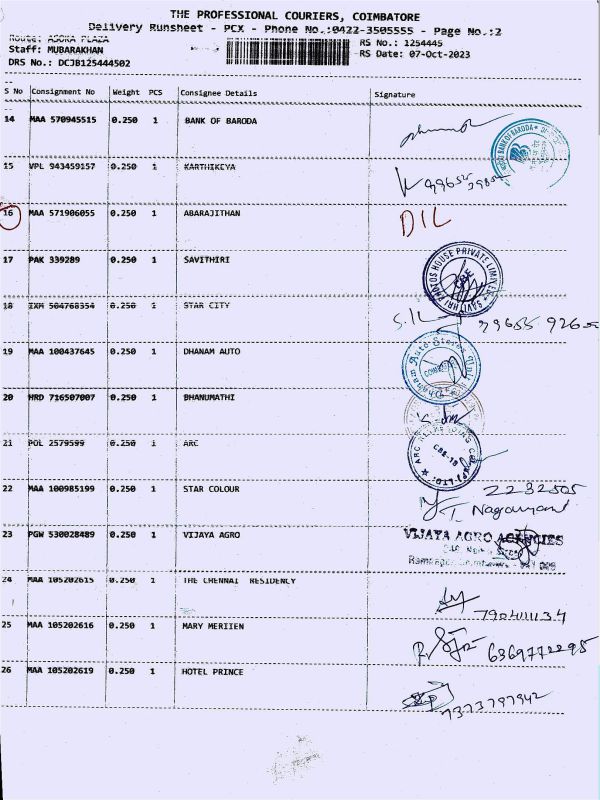 THE PROFESSIONAL COURIERS, COIMBATORE
Delivery Runsheet - PCX - Phone No.:0422-3505555 - Page No.:2
Route: ASOKA PLAZA
Staff: MUBARAKHAN
RS No.: 1254445
DRS No.: DCJB125444502
RS Date: 07-Oct-2023
S No Consignment No Weight PCS Consignee Details Signature
14 MAA 570945515 0.250 1 BANK OF BARODA
BANK OF BARODA
15 VPL 943459157 0.250 1 KARTHIKEYA
16 MAA 571906055 0.250 1 ABARAJITHAN DIL
17 PAK 339289 0.250 1 SAVITHIRI
HOUSE PRIVATE LIMITED
18 IXM 504768354 0.250 1 STAR CITY
19 MAA 100437645 0.250 1 DHANAM AUTO
Dhanam Auto Stores
20 HRD 716507007 0.250 1 BHANUMATHI
21 POL 2579599 0.250 1 ARC
22 MAA 100985199 0.250 1 STAR COLOUR 2232505
23 PGW 530028489 0.250 1 VIJAYA AGRO VIJAYA AGRO AGENCIES
24 MAA 105202615 0.250 1 THE CHENNAI RESIDENCY
25 MAA 105202616 0.250 1 MARY MERIIEN 6369772295
26 MAA 105202619 0.250 1 HOTEL PRINCE 7373797942